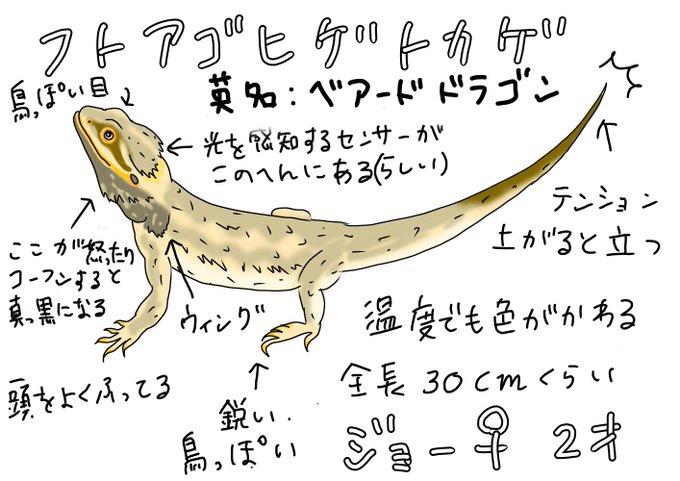 フトアゴヒゲトカゲ
英名：ベアードドラゴン
鳥っぽい目
光を感知するセンサーが
このへんにある(らしい)
テンション
上がると立つ
ここが怒ったり
コーフンすると
真っ黒になる
ウィング
温度でも色がかわる
頭をよくふってる
鋭い.
鳥っぽい
全長30cmくらい
ジョー♀ 2才